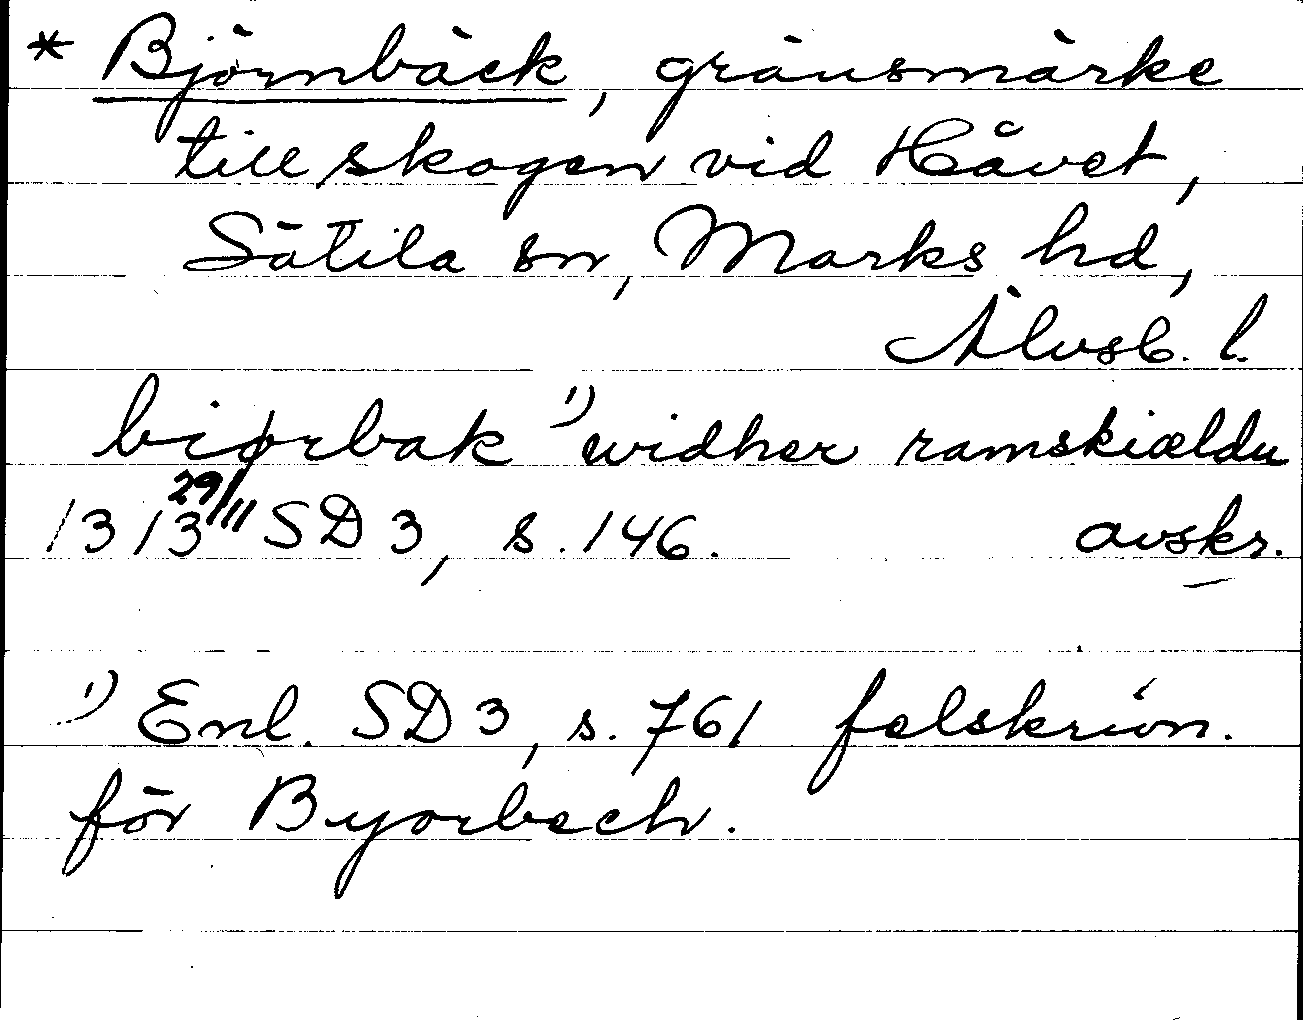 * Björnbäck, gränsmärke
till skogen vid Håvet,
Sätila sn, Marks hd,
Älvsb. l.
biørbak ¹) widher ramskiældu
1313 29/11 SD 3, s. 146. avskr.
¹) Enl. SD 3, s. 761 felskrivn.
för Byorbech.